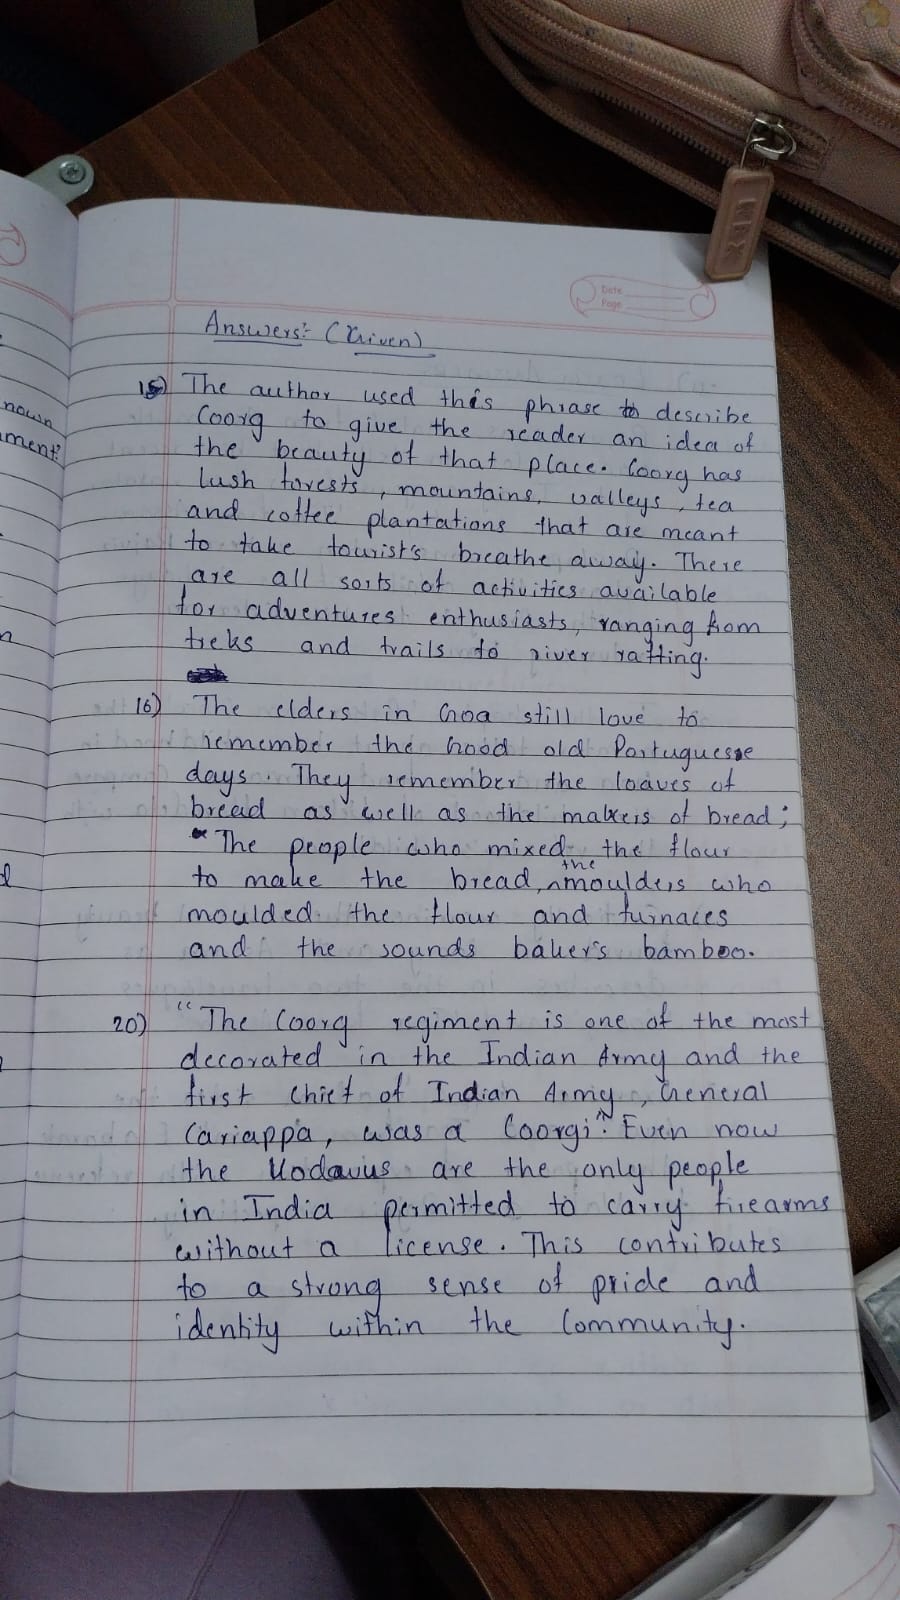 Date
Page
Answers:- (Given)
15) The author used this phrase to describe
Coorg to give the reader an idea of
the beauty of that place. Coorg has
lush forests, mountains, valleys, tea
and coffee plantations that are meant
to take tourist's breathe away. There
are all sorts of activities available
for adventures enthusiasts, ranging from
treks and trails to river rafting.
16) The elders in Goa still love to
remember the Good old Portuguesse
days. They remember the loaves of
bread as well as the makers of bread;
"The people who mixed the flour
to make the bread, the moulders who
moulded the flour and furnaces
and the sounds baker's bamboo.
20) "The Coorg regiment is one of the most
decorated in the Indian Army and the
first Chief of Indian Army, General
Cariappa, was a Coorgi". Even now
the Kodavus are the only people
in India permitted to carry firearms
without a license. This contributes
to a strong sense of pride and
identity within the Community.
nown
ment?